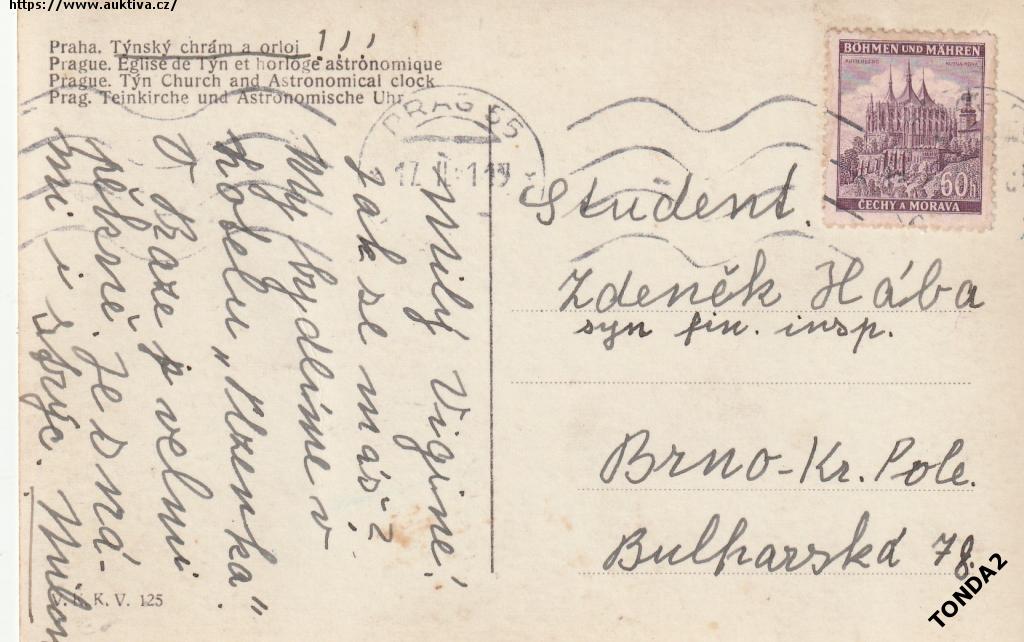 https://www.auktiva.cz/
Praha. Týnský chrám a orloj !!!
Prague. Eglise de Tyn et horloge astronomique
Prague. Týn Church and Astronomical clock
Prag. Teinkirche und Astronomische Uhr
PRAG 55
BÖHMEN UND MÄHREN
60h
ČECHY A MORAVA
Milý Vigine!
Jak se máš?
My bydlíme v
hotelu „Plzeňka".
V Praze je velmi
pěkně. Je s ná-
mi i strýc.
Student
Zdeněk Hába
syn fin. insp.
Brno-Kr. Pole.
Bulharská 78.
K. V. 125
TONDA2